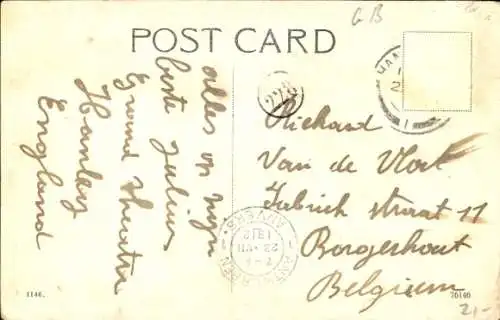 GB
POST CARD
alles op mijn
beste Julius
Grand theater
Hanley
England
228
HAN
Richard
Van de Vloet
Fabrick straat 11
Borgerhout
Belgium
ANTWERPEN
ANVERS
1912
1146.
70140
21,-